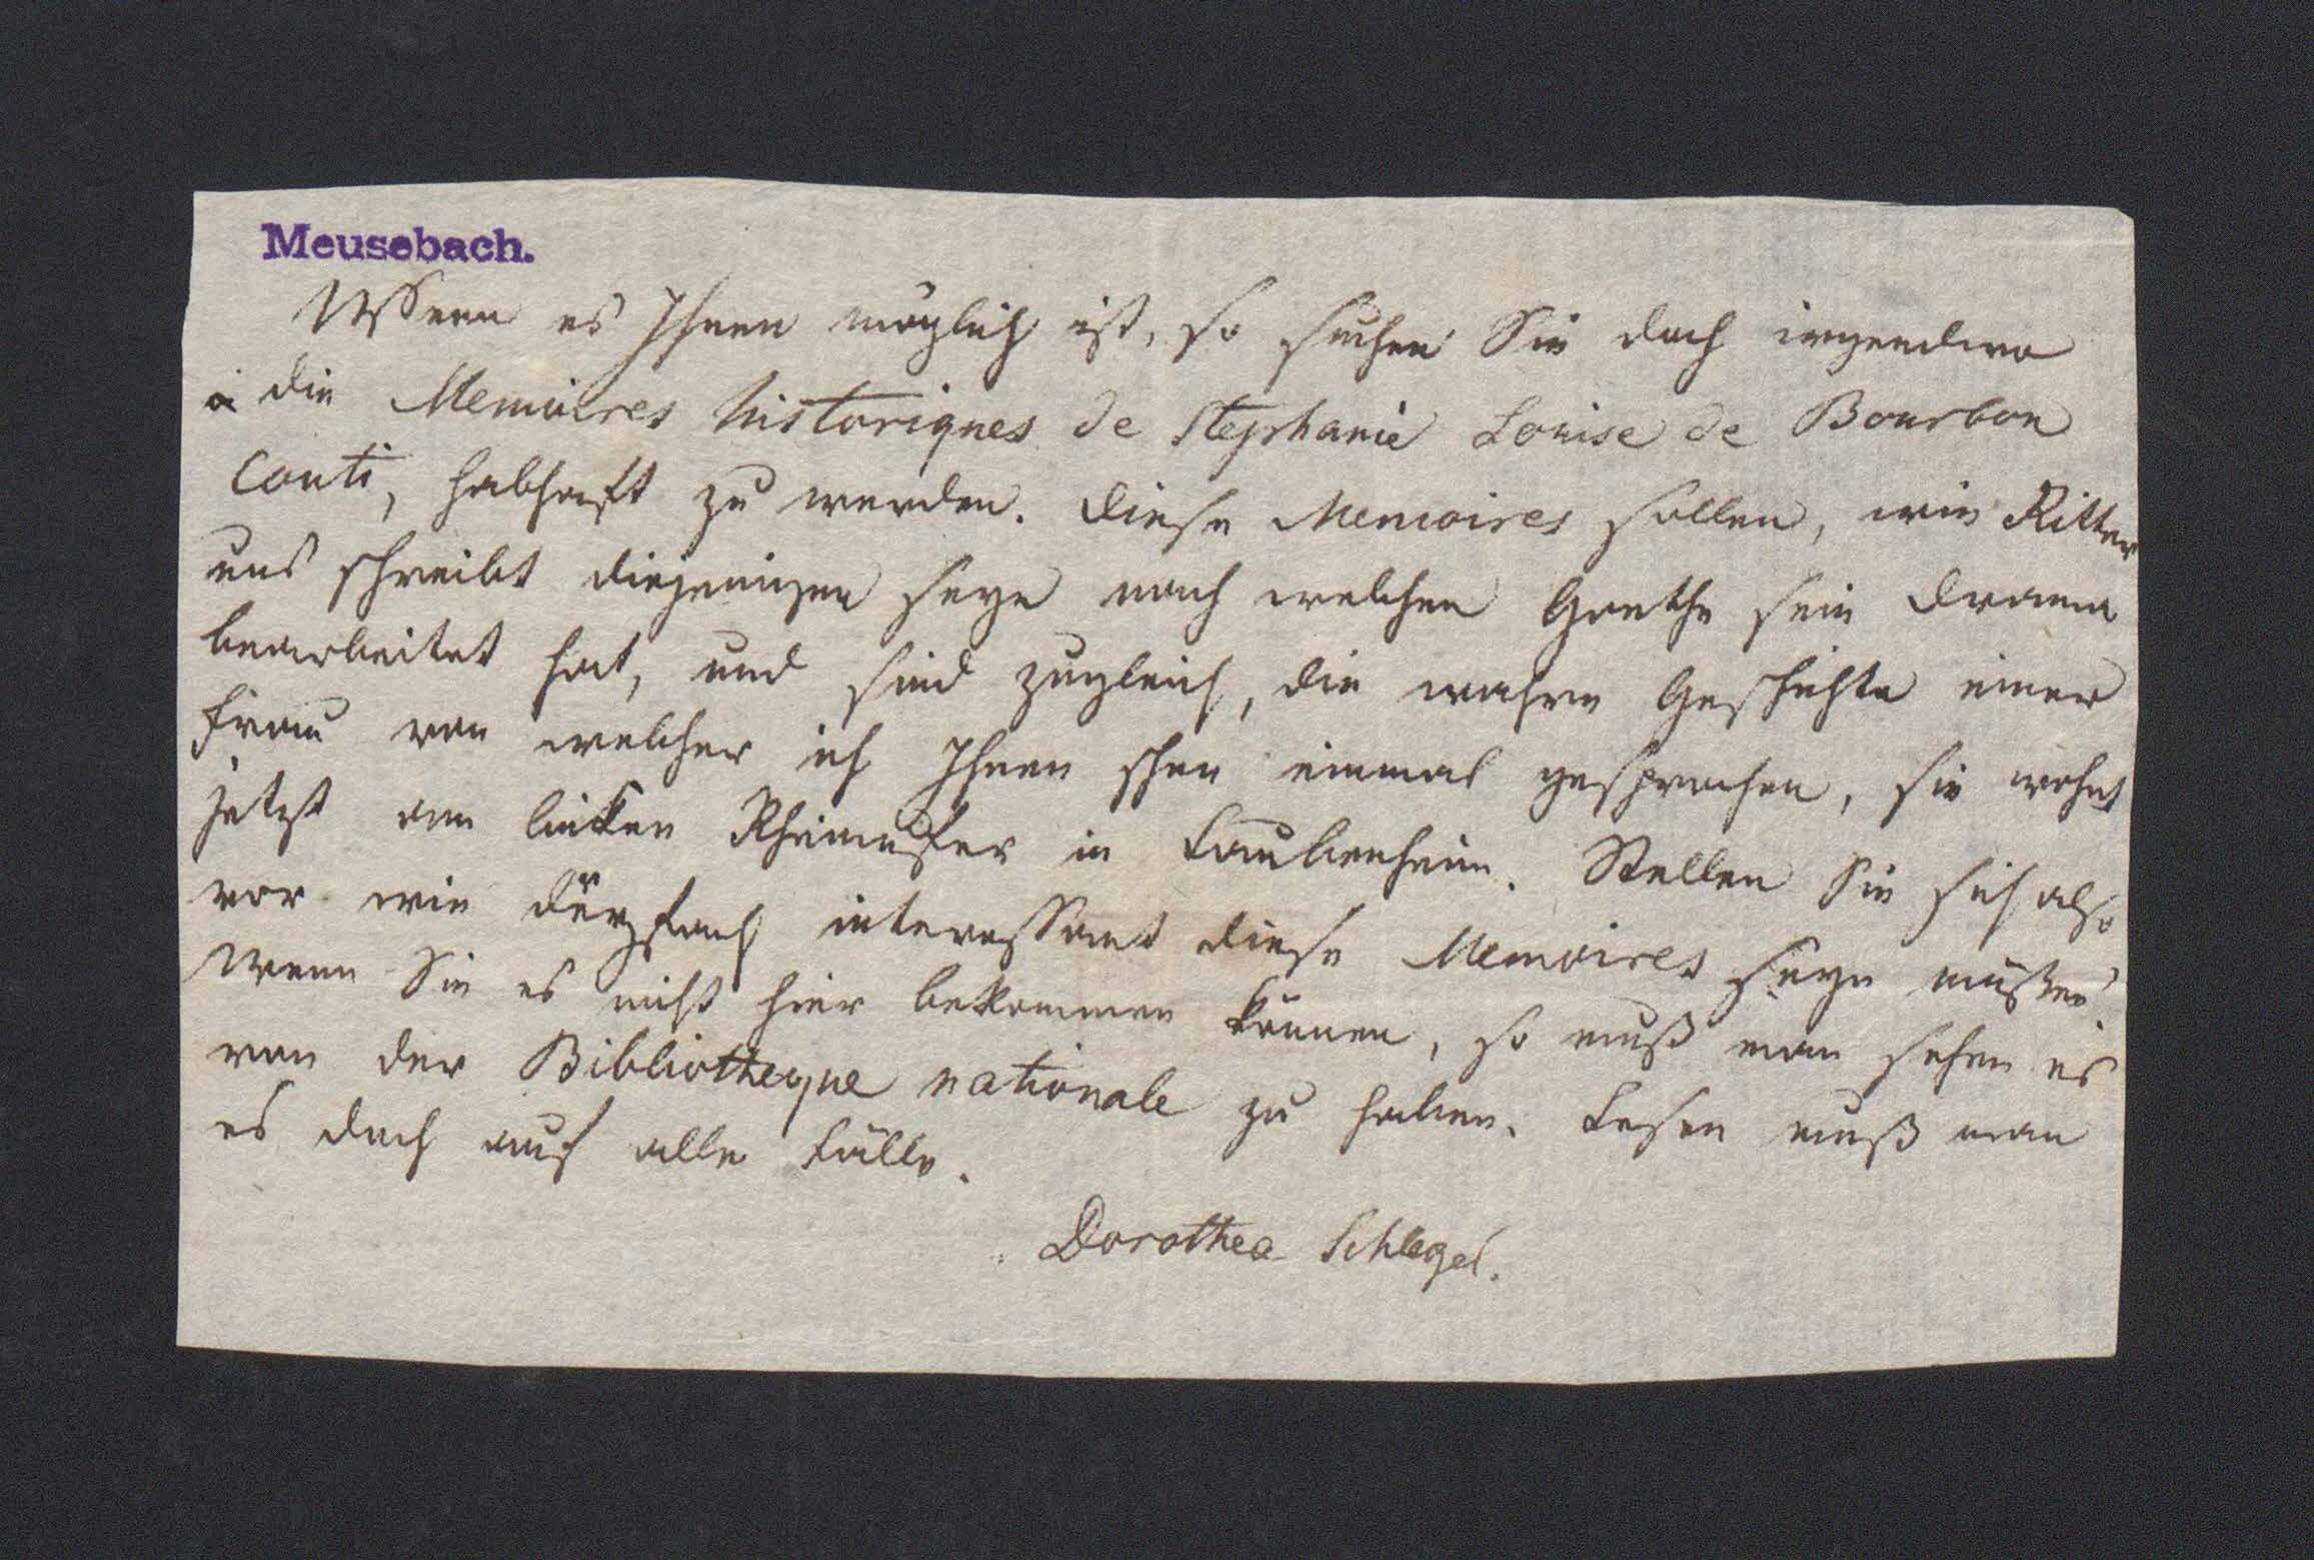 Meusebach.
Wenn es Ihnen möglich ist, so suchen Sie doch irgendwo
die Memoires historiques de Stephanie Louise de Bourbon
Conti, habhaft zu werden. Diese Memoires sollen, wie Ritter
uns schreibt diejenigen seyn nach welchen Goethe sein Drama
bearbeitet hat, und sind zugleich, die wahre Geschichte einer
Frau von welcher ich Ihnen schon einmal gesprochen, sie wohnt
jetzt am linken Rheinufer in Laubenheim. Stellen Sie sich also
vor wie interessant diese Memoires seyn müßen!
Wenn Sie es nicht hier bekommen können, so muß man sehen es
von der Bibliotheque nationale zu haben. Lesen muß man
es doch auf alle Fälle.
Dorothea Schlegel.